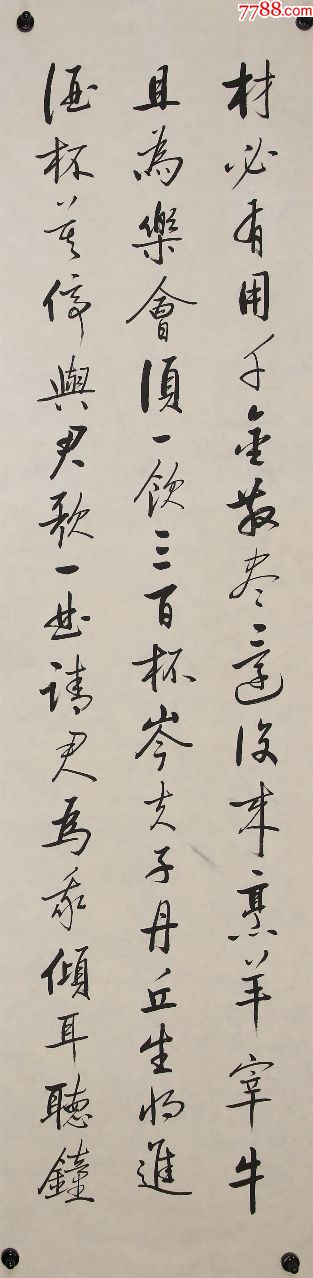 7788.com
材必有用千金散尽還復来烹羊宰牛
且為樂會須一飲三百杯岑夫子丹丘生将進
酒杯莫停與君歌一曲請君為我傾耳聽鐘